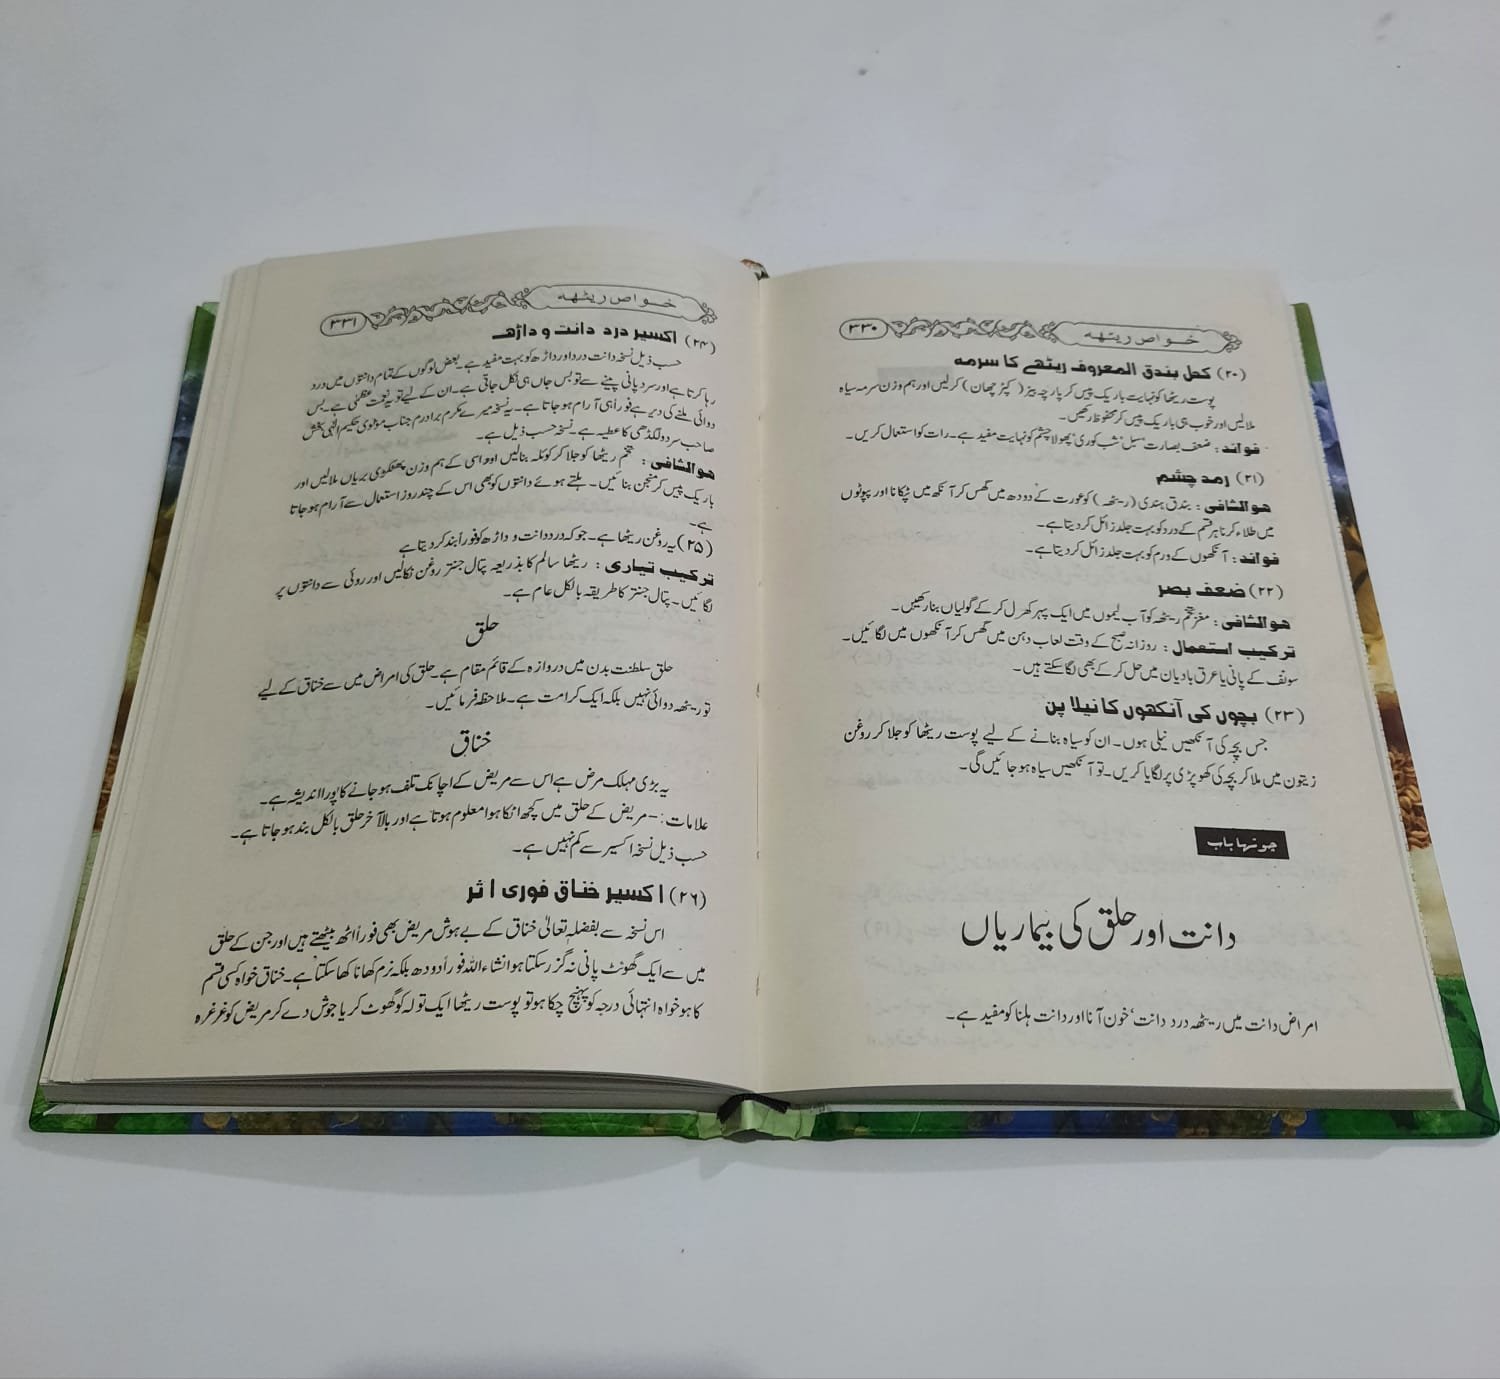 خواص ریٹھہ
۳۳۰
(۲۰) کحل بندق المعروف ریٹھے کا سرمہ
پوست ریٹھا کو نہایت باریک پیس کر پارچہ بیز (کپڑ چھان) کر لیں اور ہم وزن سرمہ سیاہ
ملا لیں اور خوب ہی باریک پیس کر محفوظ رکھیں۔
فوائد: ضعف بصارت‘ سبل‘ شب کوری‘ پھولا چشم کو نہایت مفید ہے۔ رات کو استعمال کریں۔
(۲۱) رمد چشم
ھوالشافی: بندق ہندی (ریٹھہ) کو عورت کے دودھ میں گھس کر آنکھ میں ٹپکانا اور پپوٹوں
میں طلاء کرنا ہر قسم کے درد کو بہت جلد زائل کر دیتا ہے۔
فوائد: آنکھوں کے ورم کو بہت جلد زائل کر دیتا ہے۔
(۲۲) ضعف بصر
ھوالشافی: مغز تخم ریٹھہ کو آب لیموں میں ایک پہر کھرل کر کے گولیاں بنا رکھیں۔
ترکیب استعمال: روزانہ صبح کے وقت لعاب دہن میں گھس کر آنکھوں میں لگائیں۔
سونف کے پانی یا عرق بادیان میں حل کر کے بھی لگا سکتے ہیں۔
(۲۳) بچوں کی آنکھوں کا نیلا پن
جس بچہ کی آنکھیں نیلی ہوں۔ ان کو سیاہ بنانے کے لیے پوست ریٹھا کو جلا کر روغن
زیتون میں ملا کر بچہ کی کھوپڑی پر لگایا کریں۔ تو آنکھیں سیاہ ہو جائیں گی۔
چوتھا باب
دانت اور حلق کی بیماریاں
امراض دانت میں ریٹھہ درد دانت‘ خون آنا اور دانت ہلنا کو مفید ہے۔
خواص ریٹھہ
۳۳۱
(۲۴) اکسیر درد دانت و داڑھ
حسب ذیل نسخہ دانت درد اور داڑھ کو بہت مفید ہے بعض لوگوں کے تمام دانتوں میں درد
رہا کرتا ہے اور سرد پانی پینے سے تو بس جاں ہی نکل جاتی ہے۔ ان کے لیے تو یہ نعمت عظمیٰ ہے۔ بس
دوائی ملنے کی دیر ہے فوراً ہی آرام ہو جاتا ہے۔ یہ نسخہ میرے مکرم برادرم جناب مولوی حکیم الٰہی بخش
صاحب سردولگڈھی کا عطیہ ہے۔ نسخہ حسب ذیل ہے۔
ھوالشافی: تخم ریٹھا کو جلا کر کوئلہ بنا لیں اور اسی کے ہم وزن پھٹکڑی بریاں ملا لیں اور
باریک پیس کر منجن بنائیں۔ ہلتے ہوئے دانتوں کو بھی اس کے چند روز استعمال سے آرام ہو جاتا
ہے۔
(۲۵) یہ روغن ریٹھا ہے۔ جو کہ درد دانت و داڑھ کو فوراً بند کر دیتا ہے
ترکیب تیاری: ریٹھا سالم کا بذریعہ پتال جنتر روغن نکالیں اور روئی سے دانتوں پر
لگائیں۔ پتال جنتر کا طریقہ بالکل عام ہے۔
حلق
حلق سلطنت بدن میں دروازہ کے قائم مقام ہے۔ حلق کی امراض میں سے خناق کے لیے
تو ریٹھہ دوائی نہیں بلکہ ایک کرامت ہے۔ ملاحظہ فرمائیں۔
خناق
یہ بڑی مہلک مرض ہے اس سے مریض کے اچانک تلف ہو جانے کا پورا اندیشہ ہے۔
علامات:- مریض کے حلق میں کچھ اٹکا ہوا معلوم ہوتا ہے اور بالآخر حلق بالکل بند ہو جاتا ہے۔
حسب ذیل نسخہ اکسیر سے کم نہیں ہے۔
(۲۶) اکسیر خناق فوری اثر
اس نسخہ سے بفضلہٖ تعالیٰ خناق کے بے ہوش مریض بھی فوراً اٹھ بیٹھتے ہیں اور جن کے حلق
میں سے ایک گھونٹ پانی نہ گزر سکتا ہو انشاء اللہ فوراً دودھ بلکہ نرم کھانا کھا سکتا ہے۔ خناق خواہ کسی قسم
کا ہو خواہ انتہائی درجہ کو پہنچ چکا ہو تو پوست ریٹھا ایک تولہ کو گھوٹ کر یا جوش دے کر مریض کو غرغرہ